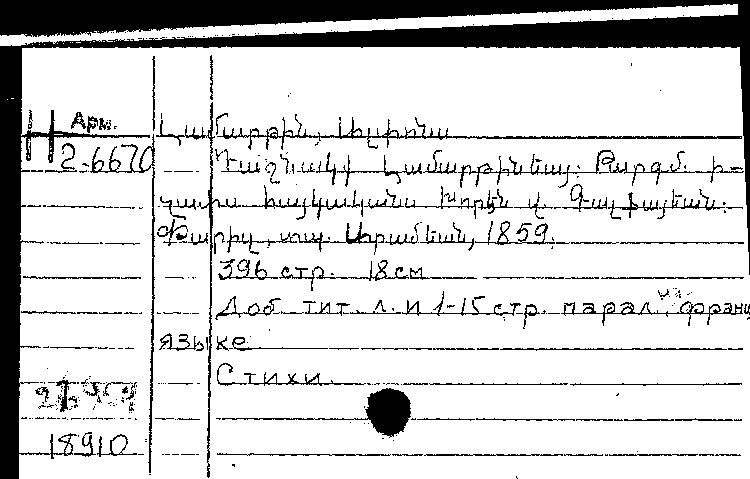 Арм.
Н
2-6670
Լամարթին, Ալֆոնս
Դաշնակք Լամարթինեայ: Թարգմ. ի
հայկականս Խորէն վ. Գալֆայեան:
Փարիզ, տպ. Արամեան, 1859.
396 стр. 18 см
Доб. тит. л. и 1-15 стр. парал. на франц
языке
Стихи.
18910